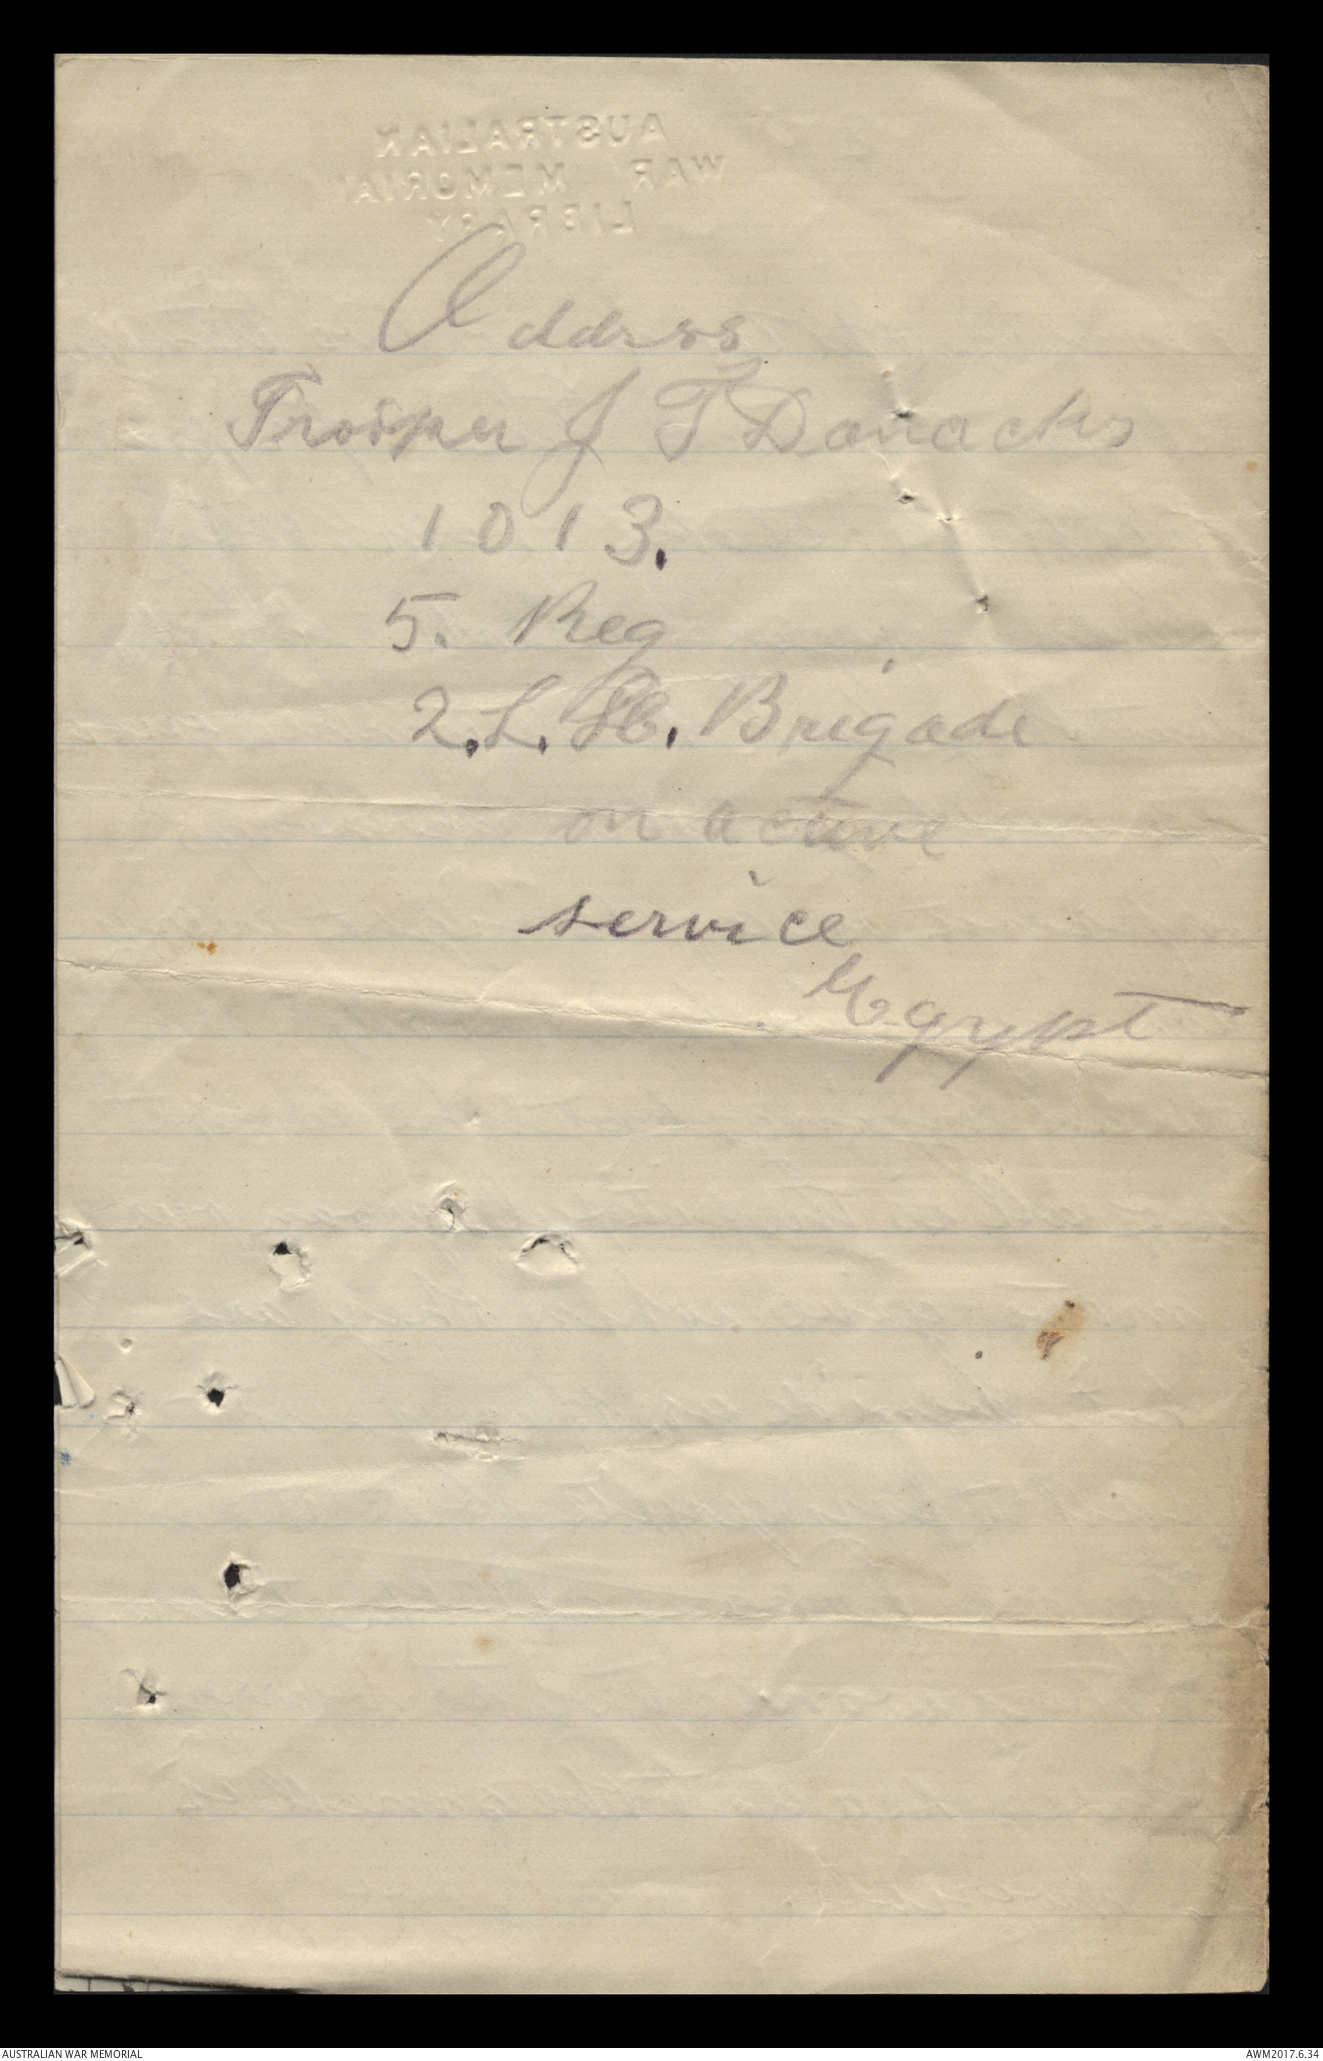 AUSTRALIAN
WAR MEMORIAL
LIBRARY
Address
Trooper J T
1013.
5. Reg
2. L. H. Brigade
on active
service
Egypt
AUSTRALIAN WAR MEMORIAL
AWM2017.6.34